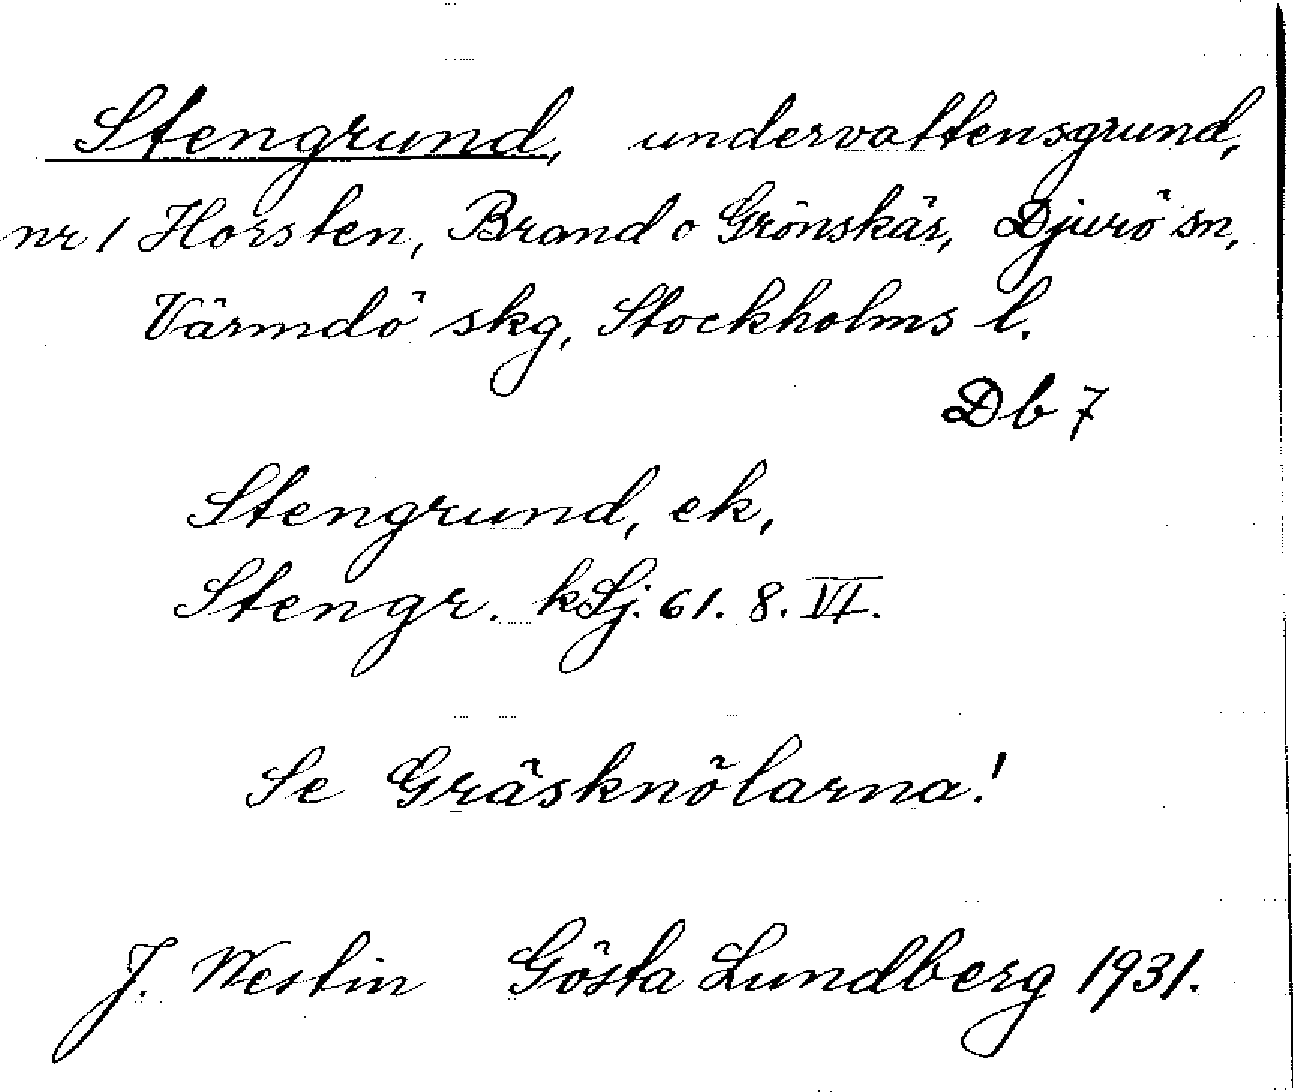 Stengrund, undervattensgrund,
nr 1 Horsten, Brand o Grönskär, Djurö sn,
Värmdö skg, Stockholms l.
Db 7
Stengrund, ek,
Stengr. kSj. 61. 8. VI.
Se Gräsknölarna!
J. Westin Gösta Lundberg 1931.